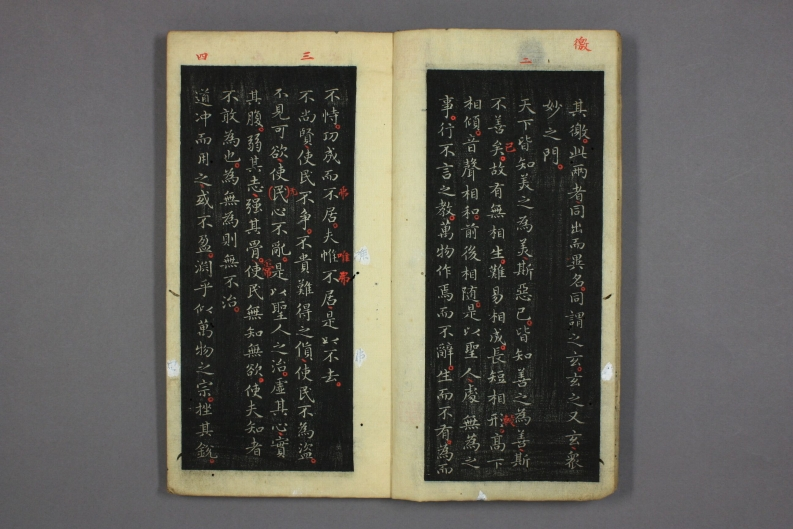 徼
二
其徼此兩者同出而異名同謂之玄玄之又玄衆
妙之門
天下皆知美之為美斯惡已皆知善之為善斯
不善矣故有無相生難易相成長短相形髙下
已
相傾音聲相和前後相隨是以聖人處無為之
事行不言之教萬物作焉而不辭生而不有為而
三
四
不恃功成而不居夫惟不居是以不去
弗
唯
弗
不尚賢使民不争不貴難得之貨使民不為盜
不見可欲使民心不亂是以聖人之治虛其心實
其腹弱其志强其骨使民無知無欲使夫知者
不敢為也為無為則無不治
道冲而用之或不盈淵乎似萬物之宗挫其銳